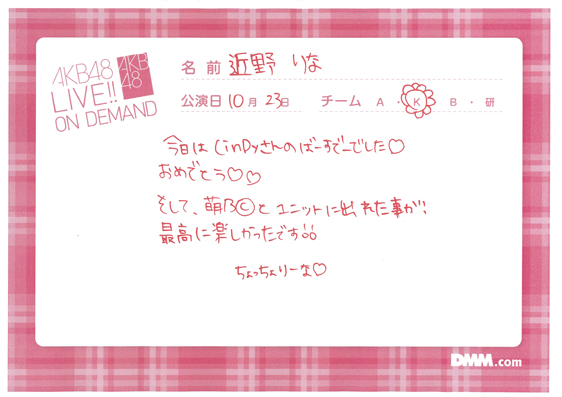 AKB48
LIVE!!
ON DEMAND
AKB
48
名前 近野 りな
公演日 10月 23日 チーム A・K・B・研
今日はCinDyさんのばーすでーでした♡
おめでとう♡♡
そして、萌乃©とユニットに出れた事が!
最高に楽しかったです!!
ちょっちょりーな♡
DMM.com